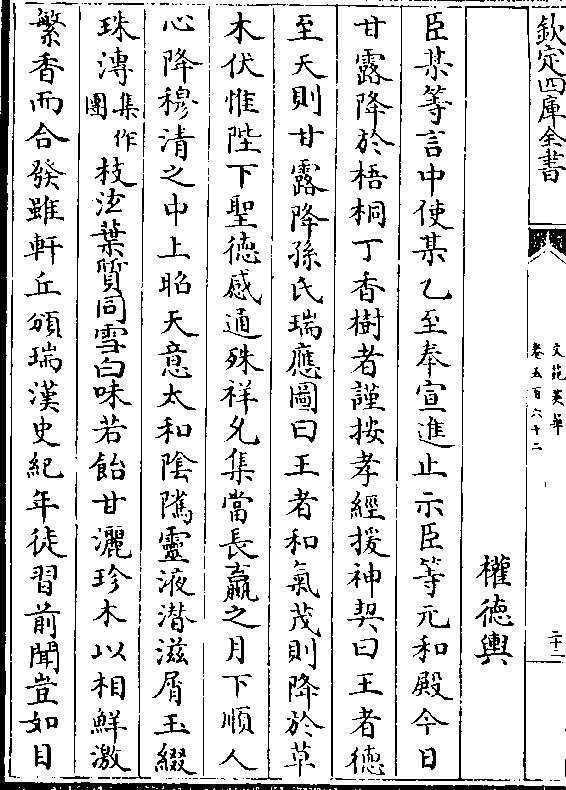 欽定四庫全書
文苑英華
卷五百六十二
二十二
權德輿
臣某等言中使某乙至奉宣進止示臣等元和殿今日
甘露降於梧桐丁香樹者謹按孝經援神契曰王者德
至天則甘露降孫氏瑞應圖曰王者和氣茂則降於草
木伏惟陛下聖德感通殊祥允集當長嬴之月下順人
心降穆清之中上昭天意太和陰隲靈液潜滋屑玉綴
珠漙集作團枝泫葉質同雪白味若飴甘灑珍木以相鮮激
繁香而合發雖軒丘頒瑞漢史紀年徒習前聞豈如目